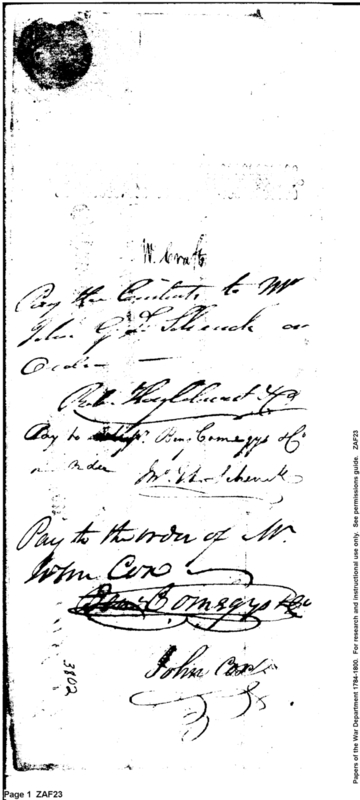 Pay the Contents to Mr
John G Schenck or
Order
Pay to Benj. Comegys & Co
or order
Jno. G. Schenck
Pay to the order of Mr.
John Cox
Benj Comegys & Co
John Cox
3802
Page 1 ZAF23
Papers of the War Department 1784-1800. For research and instructional use only. See permissions guide. ZAF23